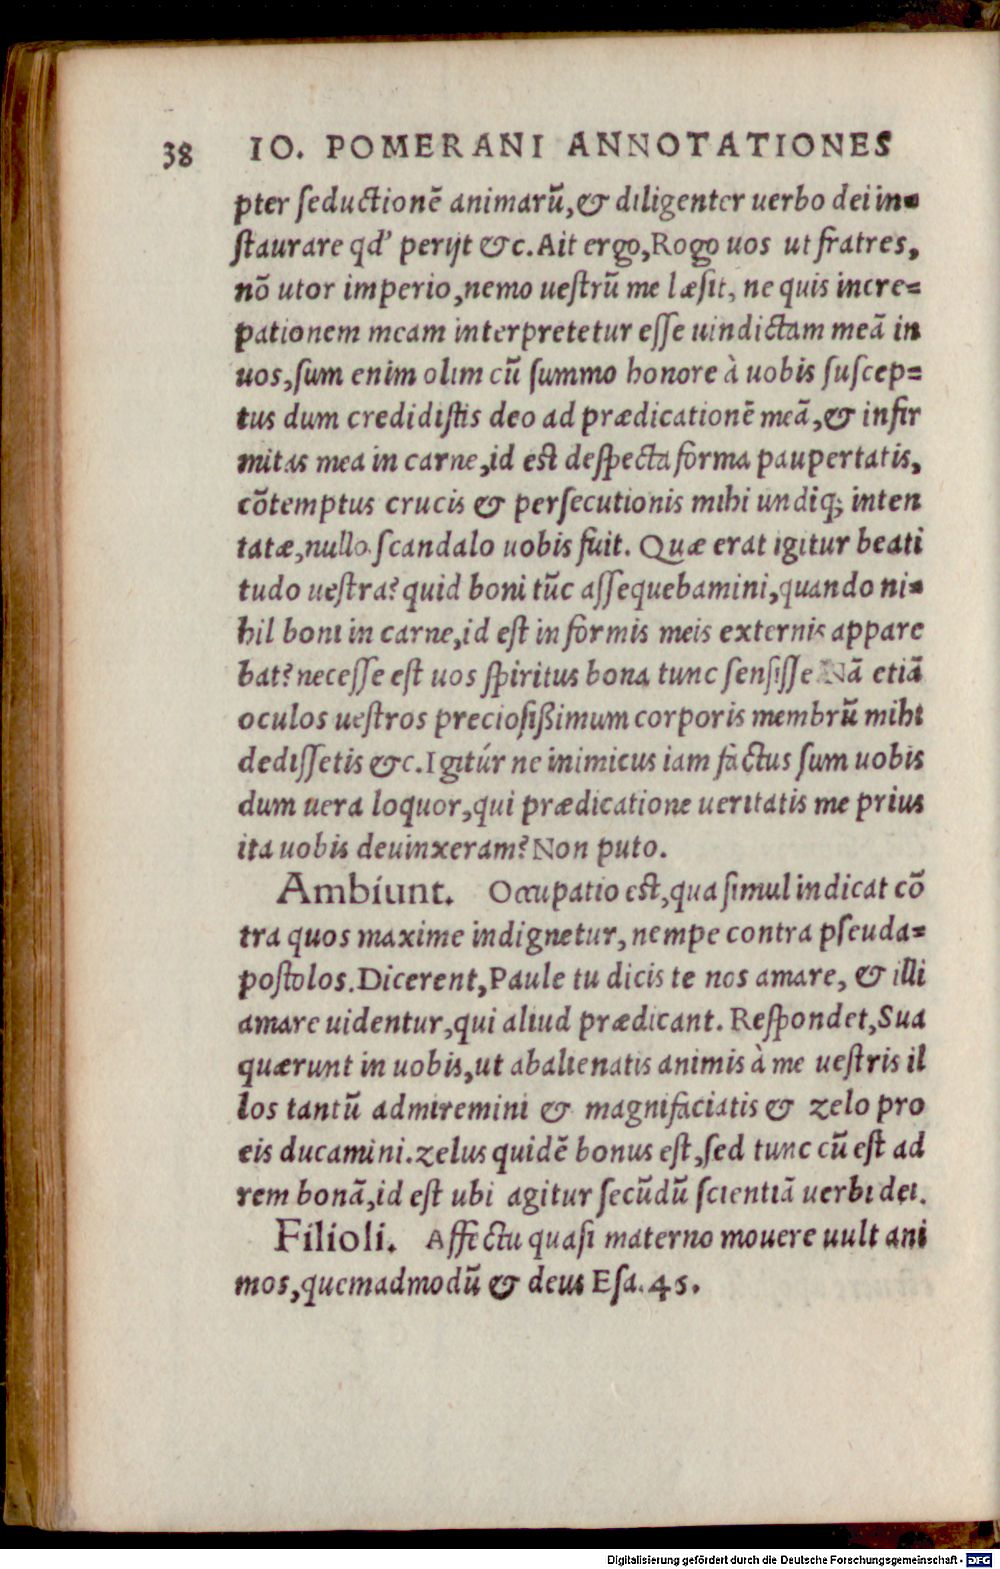 38 IO. POMERANI ANNOTATIONES
pter ſeductionē animarū,& diligenter uerbo dei in=
ſtaurare qd' perijt &c. Ait ergo, Rogo uos ut fratres,
nō utor imperio, nemo ueſtrū me læſit, ne quis incre=
pationem meam interpretetur eſſe uindictam meā in
uos, ſum enim olim cū ſummo honore à uobis ſuſcep=
tus dum credidiſtis deo ad prædicationē meā,& infir
mitas mea in carne, id est deſpecta forma paupertatis,
cōtemptus crucis & perſecutionis mihi undiq; inten
tatæ, nullo ſcandalo uobis fuit. Quæ erat igitur beati
tudo ueſtra? quid boni tūc aſſequebamini, quando ni=
hil boni in carne, id eſt in formis meis externis appare
bat? neceſſe eſt uos ſpiritus bona tunc ſenſiſſe Nā etiā
oculos ueſtros precioſißimum corporis membrū mihi
dediſſetis &c. Igitúr ne inimicus iam factus ſum uobis
dum uera loquor, qui prædicatione ueritatis me prius
ita uobis deuinxeram? Non puto.
Ambiunt. Occupatio eſt, qua ſimul indicat cō
tra quos maxime indignetur, nempe contra pſeuda=
poſtolos. Dicerent, Paule tu dicis te nos amare, & illi
amare uidentur, qui aliud prædicant. Reſpondet, Sua
quærunt in uobis, ut abalienatis animis à me ueſtris il
los tantū admiremini & magnifaciatis & zelo pro
eis ducamini. zelus quidē bonus eſt, ſed tunc cū eſt ad
rem bonā, id eſt ubi agitur ſecūdū ſcientiā uerbi dei.
Filioli. Affectu quaſi materno mouere uult ani
mos, quemadmodū & deus Eſa. 45.
Digitalisierung gefördert durch die Deutsche Forschungsgemeinschaft - DFG